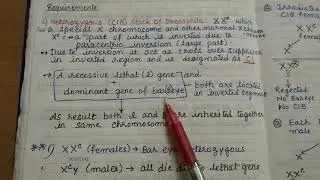 Requirements
1) Heterozygous (ClB) Stock of Drosophila X Xᶜ which
a special X chromosome and other normal X chrom
Xᶜ = → a part of which is inverted due to
paracentric inversion (large part)
→ Due to inversion it act as cross over suppressor
in inverted region and is designated as C
→ A recessive lethal (l) gene and
dominant gene of bar eye
Both are located
in inverted segment
As result both l and B are inherited together
in same chromosome
** 1) X Xᶜ (females) → Bar eye heterozygous
Xᶜy (males) → all die due to lethal gene
2) Irradiated
ClB female
X Xᶜ
Rejected
No Bareye
No ClB
3)